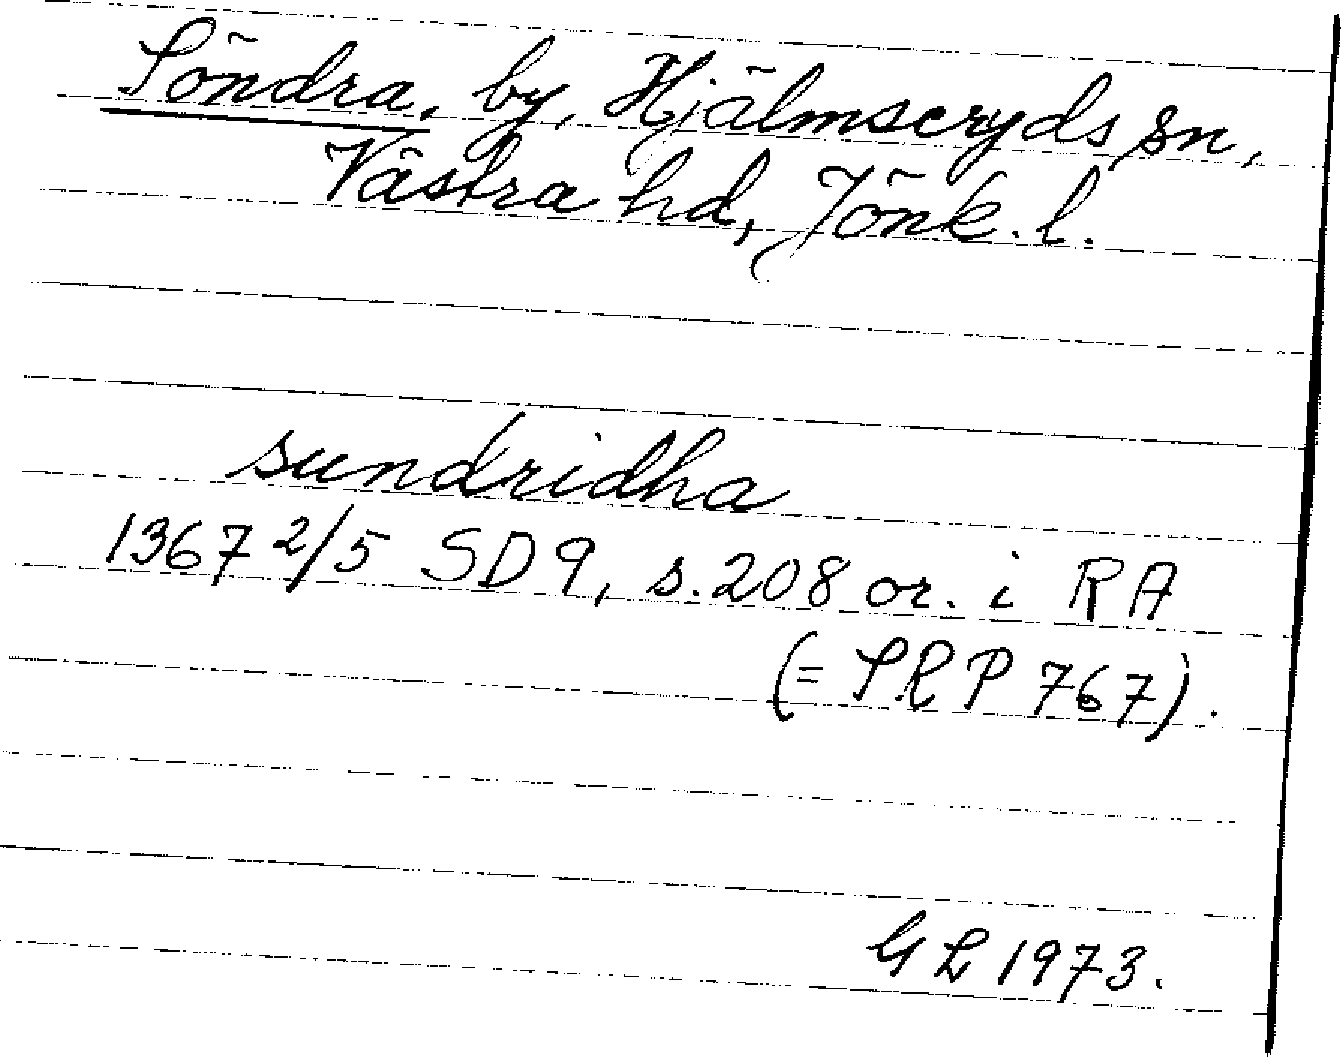 Söndra, by, Hjälmseryds sn,
Västra hd, Jönk. l.
sundridha
1367 2/5 SD 9, s. 208 or. i RA
(= SRP 767).
GL 1973.